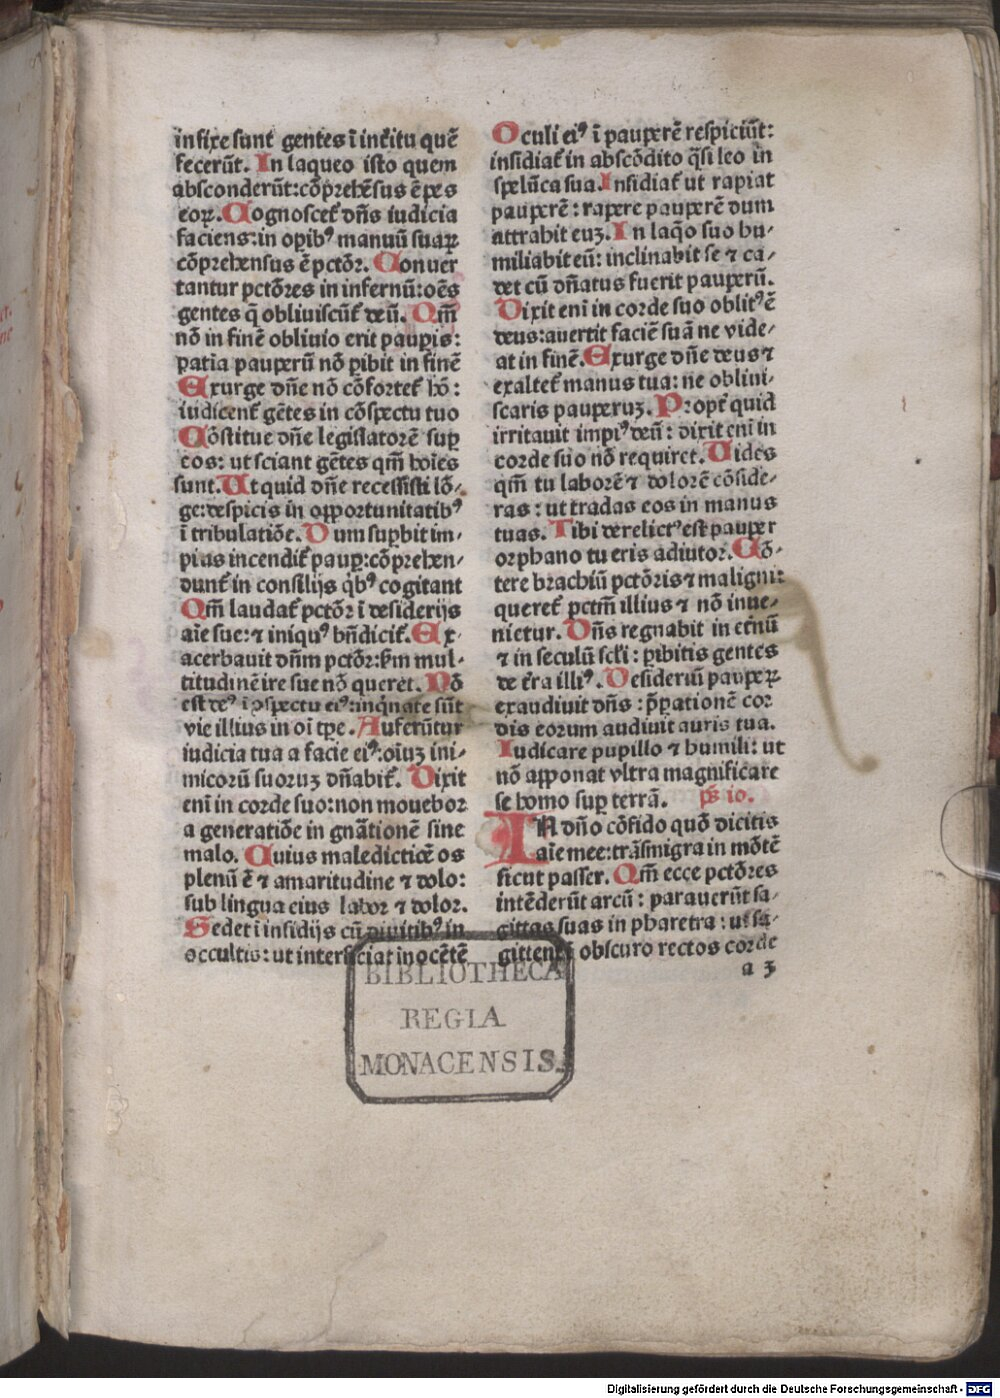 infixe sunt gentes ī inťitu quē
fecerūt. In laqueo isto quem
absconderūt: cōprehēsus ē pes
eoꝝ. Cognosceť dn̄s iudicia
faciens: in oꝑibꝰ manuū suaꝝ
cōprehensus ē pctōr. Conuer
tantur pctōres in infernū: oēs
gentes q̄ obliuiscūť deū. Qm̄
nō in finē obliuio erit pauꝑis:
patia pauperū nō ꝑibit in finē
Exurge dn̄e nō cōforteť hō:
iudicenť gētes in cōspectu tuo
Cōstitue dn̄e legislatorē suꝑ
eos: ut sciant gētes qm̄ hoīes
sunt. Ut quid dn̄e recessisti lō-
ge: despicis in opportunitatibꝰ
ī tribulatiōe. Dum suꝑbit im-
pius incendiť pauꝑ: cōprehen-
dunť in consilijs q̄bꝰ cogitant
Qm̄ laudať pctōr ī desiderijs
aīe sue: ⁊ iniquꝰ bn̄diciť. Ex-
acerbauit dn̄m pctōr: ẜm mul-
titudinē ire sue nō queret. Nō
est deꝰ ī ꝯspectu eiꝰ: inq̇nate sūt
vie illius in oī tꝑe. Auferūtur
iudicia tua a facie eiꝰ: oīuꝫ ini-
micorū suoruꝫ dn̄abiť. Dixit
eni in corde suo: non mouebor
a generatiōe in gnātionē sine
malo. Cuius maledictiōe os
plenū ē ⁊ amaritudine ⁊ dolo:
sub lingua eius labor ⁊ dolor.
Sedet ī insidijs cū diuitibꝰ in
occultis: ut interficiat inocētē
Oculi eiꝰ ī pauperē respiciūt:
insidiať in abscōdito q̄si leo in
spelūca sua. Insidiať ut rapiat
pauperē: rapere pauperē dum
attrahit euꝫ. In laq̄o suo hu-
miliabit eū: inclinabit se ⁊ ca-
det cū dn̄atus fuerit pauperū.
Dixit eni in corde suo oblitꝰ ē
deus: auertit faciē suā ne vide-
at in finē. Exurge dn̄e deus ⁊
exalteť manus tua: ne obliui-
scaris pauperuꝫ. Propť quid
irritauit impiꝰ deū: dixit eni in
corde suo nō requiret. Uides
qm̄ tu laborē ⁊ dolorē cōside-
ras: ut tradas eos in manus
tuas. Tibi derelictꝰ est pauper
orphano tu eris adiutor. Cō-
tere brachiū pctōris ⁊ maligni:
quereť pctm̄ illius ⁊ nō inue-
nietur. Dn̄s regnabit in eťnū
⁊ in seculū scľi: ꝑibitis gentes
de ťra illiꝰ. Desideriū pauꝑeꝝ
exaudiuit dn̄s: p̄ꝑationē cor
dis eorum audiuit auris tua.
Iudicare pupillo ⁊ humili: ut
nō apponat vltra magnificare
se homo suꝑ terrā. pš io.
IN dn̄o cōfido quō dicitis
aīe mee: trāsmigra in mōtē
sicut passer. Qm̄ ecce pctōres
intēderūt arcū: parauerūt sa-
gittas suas in pharetra: ut sa-
gittent ī obscuro rectos corde
a 3
BIBLIOTHECA
REGIA
MONACENSIS.
Digitalisierung gefördert durch die Deutsche Forschungsgemeinschaft - DFG